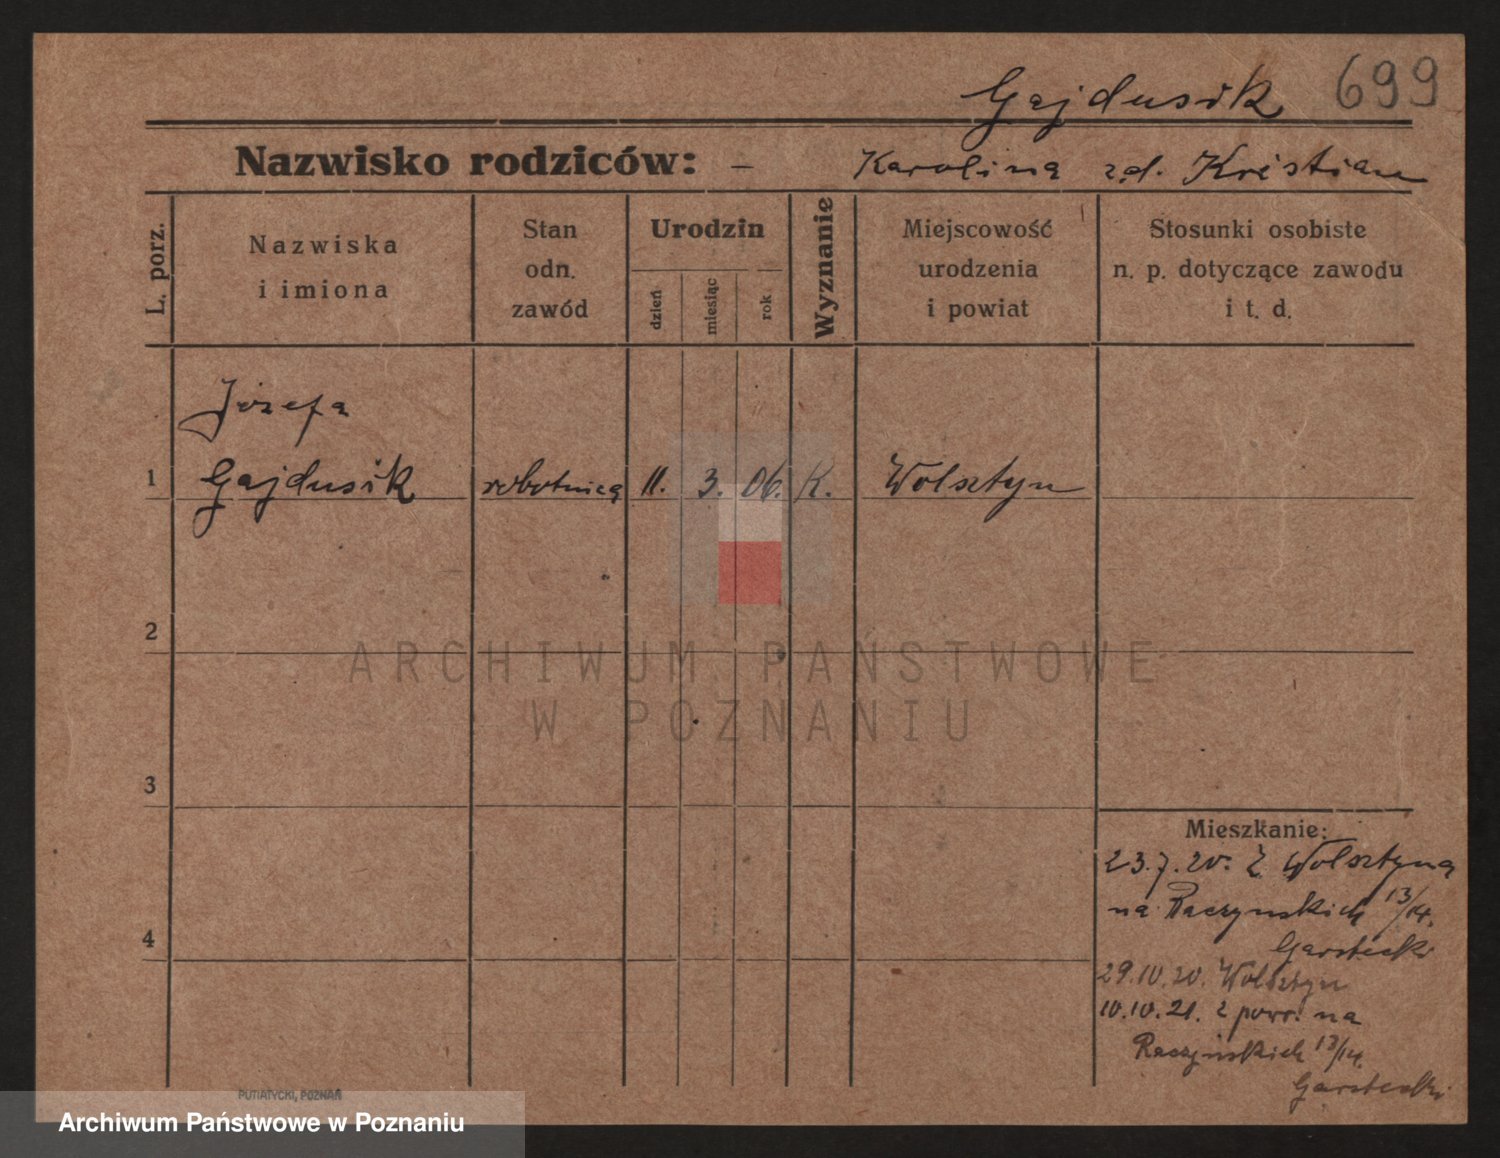 Gajdusik 699
Nazwisko rodziców: – Karolina zd. Kristian
L. porz.
Nazwiska
i imiona
Stan
odn.
zawód
Urodzin
dzień
miesiąc
rok
Wyznanie
Miejscowość
urodzenia
i powiat
Stosunki osobiste
n. p. dotyczące zawodu
i t. d.
Józefa
1 Gajdusik robotnica 11. 3. 06. K. Wolsztyn
2
3
4
Mieszkanie:
23.7.20. Z Wolsztyna
na Raczynskich 13/14.
Garstecki
29.10.20. Wolsztyn
10.10.21. z powr. na
Raczyńskich 13/14.
Garstecki
PUTIATYCKI, POZNAŃ
ARCHIWUM PAŃSTWOWE
W POZNANIU
Archiwum Państwowe w Poznaniu